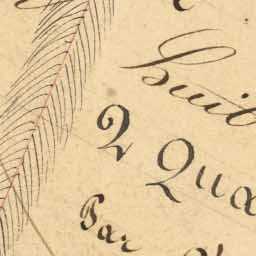 Huit
2 Qua
Par